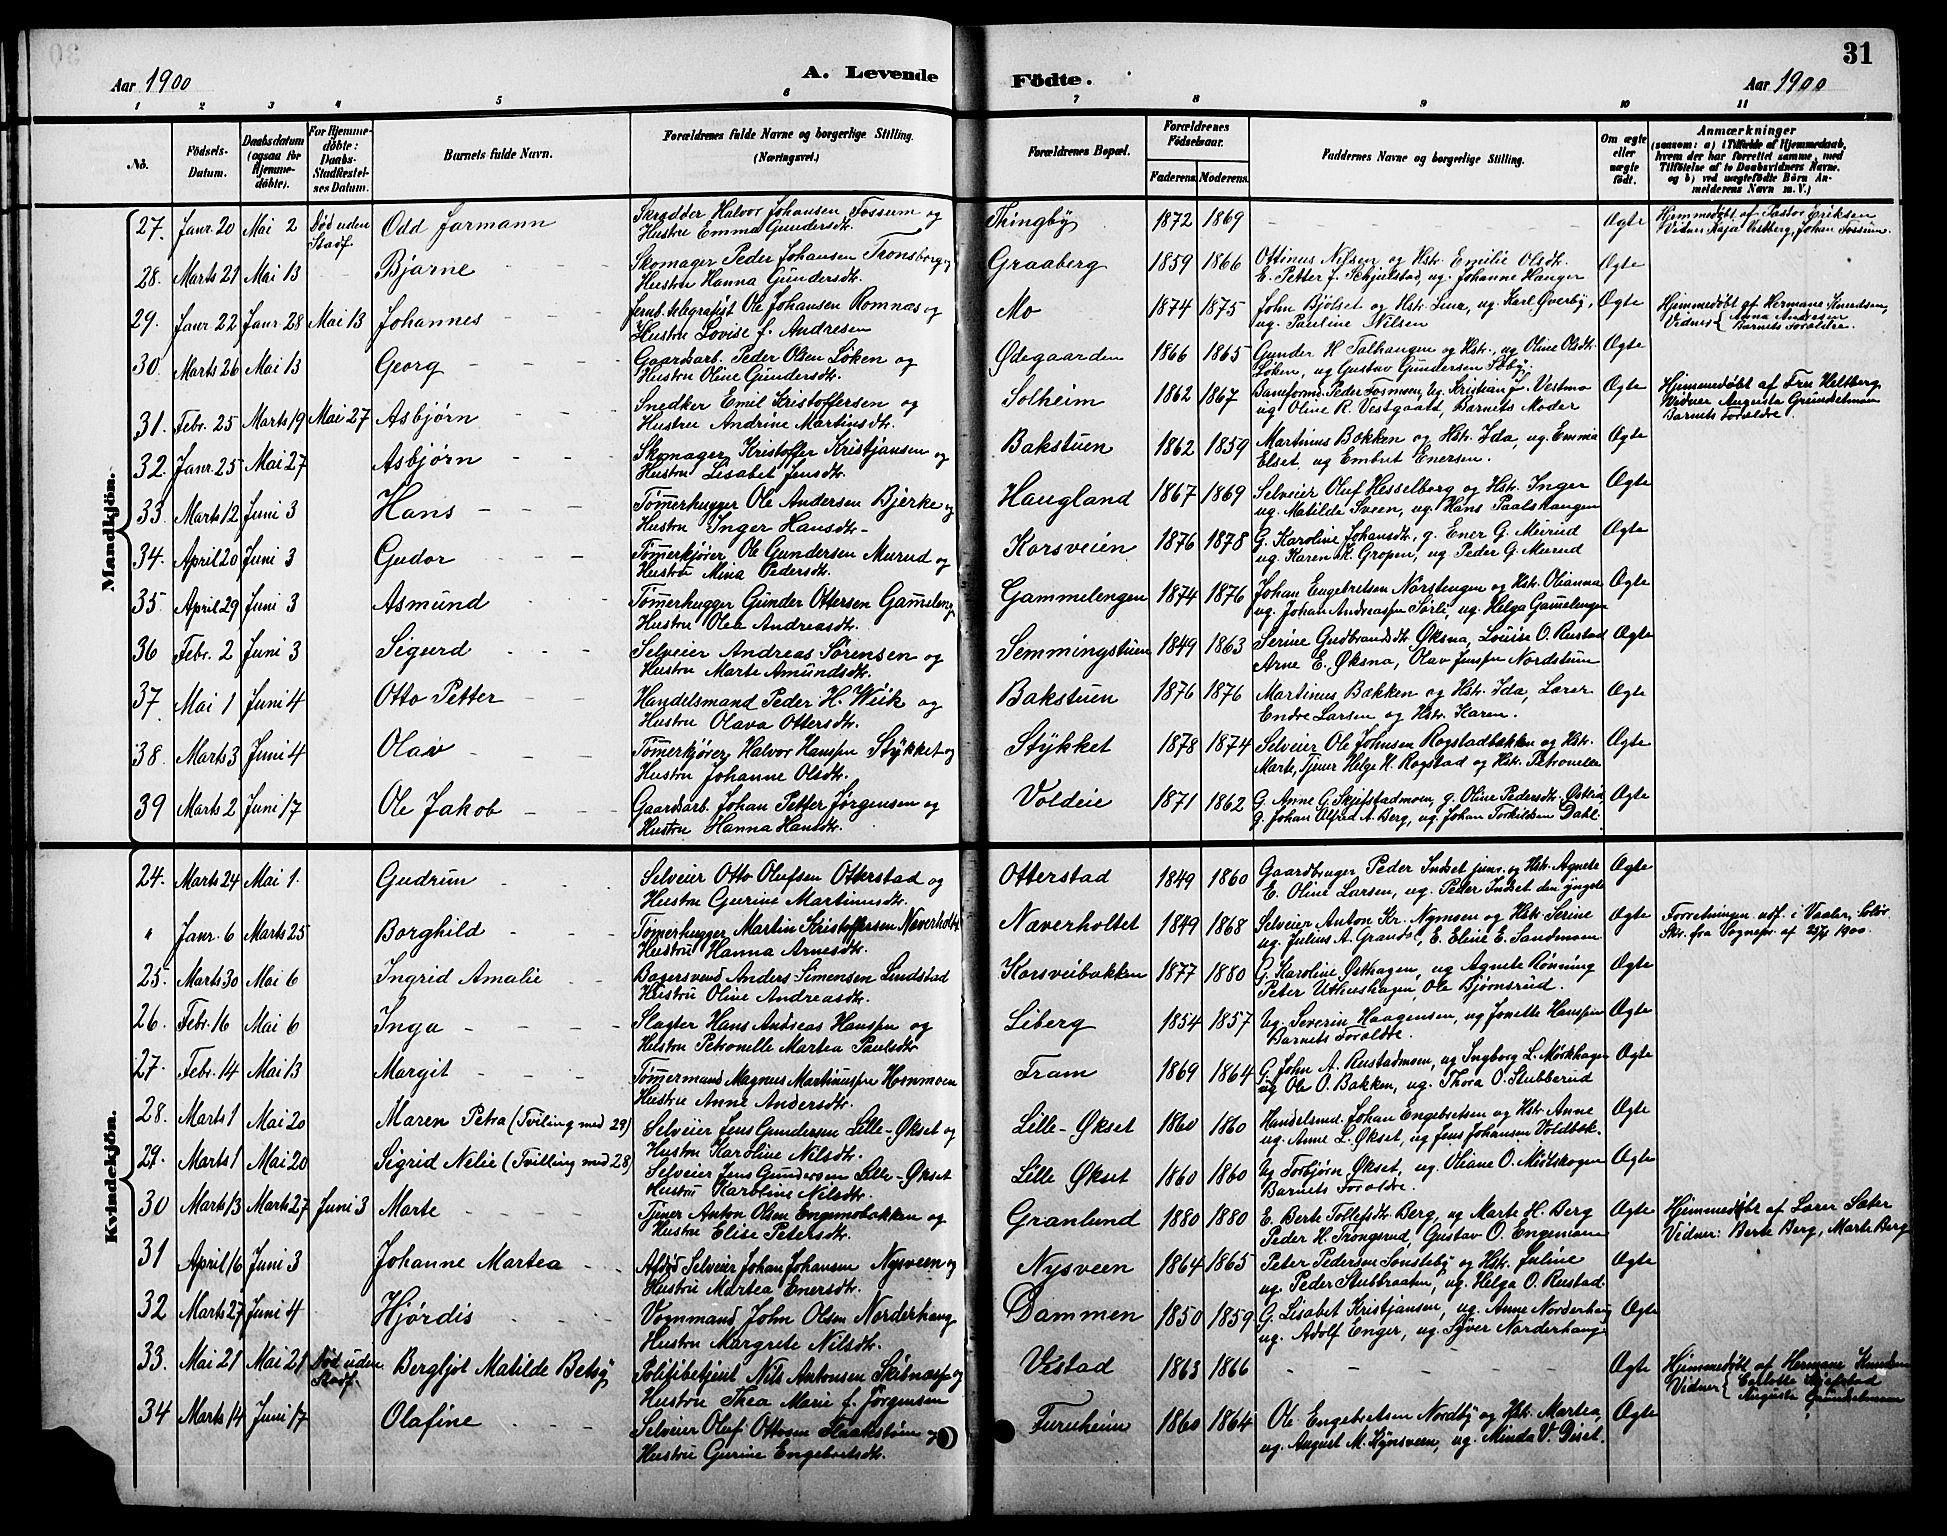 31
Aar 1900 A. Levende Födte. Aar 1900
1 2 3 4 5 6 7 8 9 10 11
No. Födsels-Datum. Daabsdatum (ogsaa for Hjemmedöbte). For Hjemmedöbte: Daabs-Stadfæstelsens Datum. Barnets fulde Navn. Forældrenes fulde Navne og borgerlige Stilling. (Næringsvei.) Forældrenes Bopæl. Forældrenes Födselsaar. Faderens. Moderens. Faddernes Navne og borgerlige Stilling. Om ægte eller uægte födt. Anmærkninger (saasom: a) i Tilfælde af Hjemmedaab, hvem der har forrettet samme, med Tilföielse af to Daabsvidners Navne, og b) ved uægtefödte Börn Anmelderens Navn m. V.)
Mandkjön.
27. Janr. 20 Mai 2 Død uden Stadf. Odd Jarmann Skrædder Halvor Johansen Fossum og Hustru Emma Gundersdtr. Thingby 1872 1869 - - - Ægte Hjemmedøbt af Pastor Eriksen Vidner Kaja Østberg, Johan Fossum.
28. Marts 21 Mai 13 Bjarne Skomager Peder Johansen Tronsberg og Hustru Hanna Gundersdtr. Graaberg 1859 1866 Ottinus Nilsen og Hstr. Emilie Olsdtr. E. Petter f. Skjulstad, ug. Johanne Hanger Ægte
29. Janr. 22 Janr. 28 Mai 13 Johannes Jernb.telegrafist Ole Johansen Romnæs og Hustru Lovise f. Andresen Mo 1874 1875 John Bjølset og Hstr. Lina, ug. Karl Øverby, ug. Pauline Nilsen Ægte Hjemmedøbt af Hermane Knudsen, Vidner { Anna Andresen Barnets Forældre.
30 Marts 26 Mai 13 Georg Gaardsarb. Peder Olsen Løken og Hustru Oline Gundersdtr. Ødegaarden 1866 1865 Gunder H. Talhaugen og Hstr., ug Oline Olsdtr. Løken, ug Gustav Gundersen Ægte
31. Febr. 25 Marts 19 Mai 27 Asbjørn Snedker Emil Kristoffersen og Hustru Andrine Martinsdtr. Solheim 1862 1867 Baneformd. Peder Fosmoen, Ug. Kristian J. Vestmo ug Oline R. Vestgaard, Barnets Moder Ægte Hjemmedøbt af Fru Heltberg, Vidner Augusta Grundelmann Barnets Forældre.
32. Janr. 25 Mai 27 Asbjørn Skomager Kristoffer Kristjansen og Hustru Lisabet Jensdtr. Bakstuen 1862 1859 Martinus Bakken og Hstr. Ida, ug. Emma Elset, ug Embret Enersen. Ægte
33. Marts 12 Juni 3 Hans Tømerhugger Ole Andersen Bjerke og Hustru Inger Hansdtr. Haugland 1867 1869 Selveier Oluf Hesselberg og Hstr. Inger ug. Matilde Sveen, ug Hans Paalshaugen Ægte
34. April 20 Juni 3 Gudor Tømerkjører Ole Gundersen Murud og Hustru Mina Pedersdtr. Korsveien 1876 1878 G. Karoline Johansdtr., g. Ener G. Meirud ug. Karen K. Gropen, ug Peder G. Murud Ægte
35 April 29 Juni 3 Asmund Tømerhugger Gunder Ottersen Gammeleng Hustru Olea Andreasdtr. Gammelengen 1874 1876 Johan Engebretsen Norstengen og Hstr. Olianna ug. Johan Andreassen Sørli, ug. Helga Gamelengen Ægte
36 Febr. 2 Juni 3 Sigurd Selveier Andreas Sørensen og Hustru Marte Amundsdtr. Semmingstuen 1849 1863 Serine Gudbrandsdtr. Øksna, Louise O. Rustad Arne E. Øksna, Olav Jenssen Nordstuen Ægte
37 Mai 1 Juni 4 Otto Petter Handelsmand Peder H. Wiik og Hustru Olava Ottersdtr. Bakstuen 1876 1876 Martinus Bakken og Hstr. Ida, Lærer Endre Larsen og Hstr. Karen. Ægte
38 Marts 3 Juni 4 Olav Tømerkjører Halvor Hanssen Stykket og Hustru Johanne Olsdtr. Stykket 1878 1874 Selveier Ole Johnsen Rogstadbakken og Hstr. Marte, Tjener Helge H. Rogstad og Hstr. Petronelle Ægte
39 Marts 2 Juni 17 Ole Jakob Gaardsarb. Johan Petter Jørgensen og Hustru Hanna Hansdtr. Voldeie 1871 1862 G. Anne G. Skjefstadmoen, g. Oline Pedersdtr. Østlid, G. Johan Alfred A. Berg, ug. Johan Torkildsen Dahl. Ægte
Kvindekjön.
24. Marts 24 Mai 1. Gudrun Selveier Otto Olufsen Otterstad og Hustru Gurine Martinusdtr. Otterstad 1849 1860 Gaardbruger Peder Indset junr. og Hstr. Agnete E. Oline Larsen, ug. Peder Indset den yngste Ægte
" Janr. 6 Marts 25 Borghild Tømerhugger Martin Kristoffersen Næverholtet Hustru Hanna Arnesdtr. Næverholtet 1849 1868 Selveier Anton Kr. Nymoen og Hstr. Serine ug. Julius A. Grands, E. Eline E. Sandmoen Ægte Forretningen udf. i Vaaler, Solør. Skr. fra Sognepr. af 25/4 1900.
25. Marts 30 Mai 6 Ingrid Amalie Bagersvend Anders Simensen Lindstad Hustru Oline Andreasdtr. Korsveibakken 1877 1880 G. Karoline Østhagen, ug Agnete Rønning Peter Uthushagen, Ole Bjørnsrud. Ægte
26. Febr. 16 Mai 6 Inga Slagter Hans Andreas Hanssen og Hustru Petronelle Martea Paulsdtr. Liberg 1854 1857 Ug. Severin Haagensen, ug Jonette Hanssen Barnets Forældre. Ægte
27. Febr. 14 Mai 13 Margit Tømmermand Magnus Martinussen Hornmoen Hustru Anne Andersdtr. Fram 1869 1864 G. John A. Rustadmoen, ug Ingborg L. Mørkhagen ug Ole O. Bakken, ug. Thora O. Stubberud Ægte
28. Marts 1 Mai 20 Maren Petra (Tviling med 29) Selveier Jens Gundersen Lille-Økset og Hustru Karoline Nilsdtr. Lille-Økset 1860 1860 Handelsmd. Johan Engebretsen og Hstr. Anne ug. Anne L. Økset, ug Jens Johansen Voldbak. Ægte
29. Marts 1 Mai 20 Sigrid Nelie (Tvilling med 28) Selveier Jens Gundersen Lille-Økset Hustru Karoline Nilsdtr. Lille Økset 1860 1860 Ug Torbjørn Økset, ug. Oliane O. Midtskogen Barnets Forældre. Ægte
30 Marts 13 Marts 27 Juni 3 Marte Tjener Anton Olsen Engemobakken og Hustru Elise Petersdtr. Granlund 1880 1880 E. Berte Tollefsdtr. Berg, ug Marte H. Berg Peder H. Trongsrud, Gustav O. Engemoen Ægte Hjemmedøbt af Lærer Sæter Vidner: Berte Berg, Marte Berg
31 April 16 Juni 3 Johanne Martea Afdød Selveier Johan Johansen Nysveen og Hustru Martea Enersdtr. Nysveen 1864 1865 Peter Pedersen Sønsteby og Hstr. Juline ug. Peder Stubbraaten, ug. Helga O. Rustad. Ægte
32 Marts 27 Juni 4 Hjørdis Vognmand John Olsen Norderhaug Hustru Margrete Nilsdtr. Dammen 1850 1859 G. Lisabet Kristjansen, ug. Anne Norderhaug ug. Adolf Enger, ug. Syver Norderhaug Ægte
33. Mai 21 Mai 21 Død uden Stadf. Bergljot Matilde Betsy Politibetjent Nils Antonsen Skibnæs og Hustru Thea Marie f. Jørgensen Vestad 1863 1866 - - - Ægte Hjemmedøbt af Hermane Knudsen Vidner { Carlotte Skjefstad Augusta Grundelmann
34 Marts 14 Juni 17 Olafine Selveier Oluf Ottosen Haakstuen og Hustru Gurine Engebretsdtr. Furuheim 1860 1864 Ole Engebretsen Nordby og Hstr. Martea, ug. August M. Kynsveen, ug. Minda V. Diset. Ægte